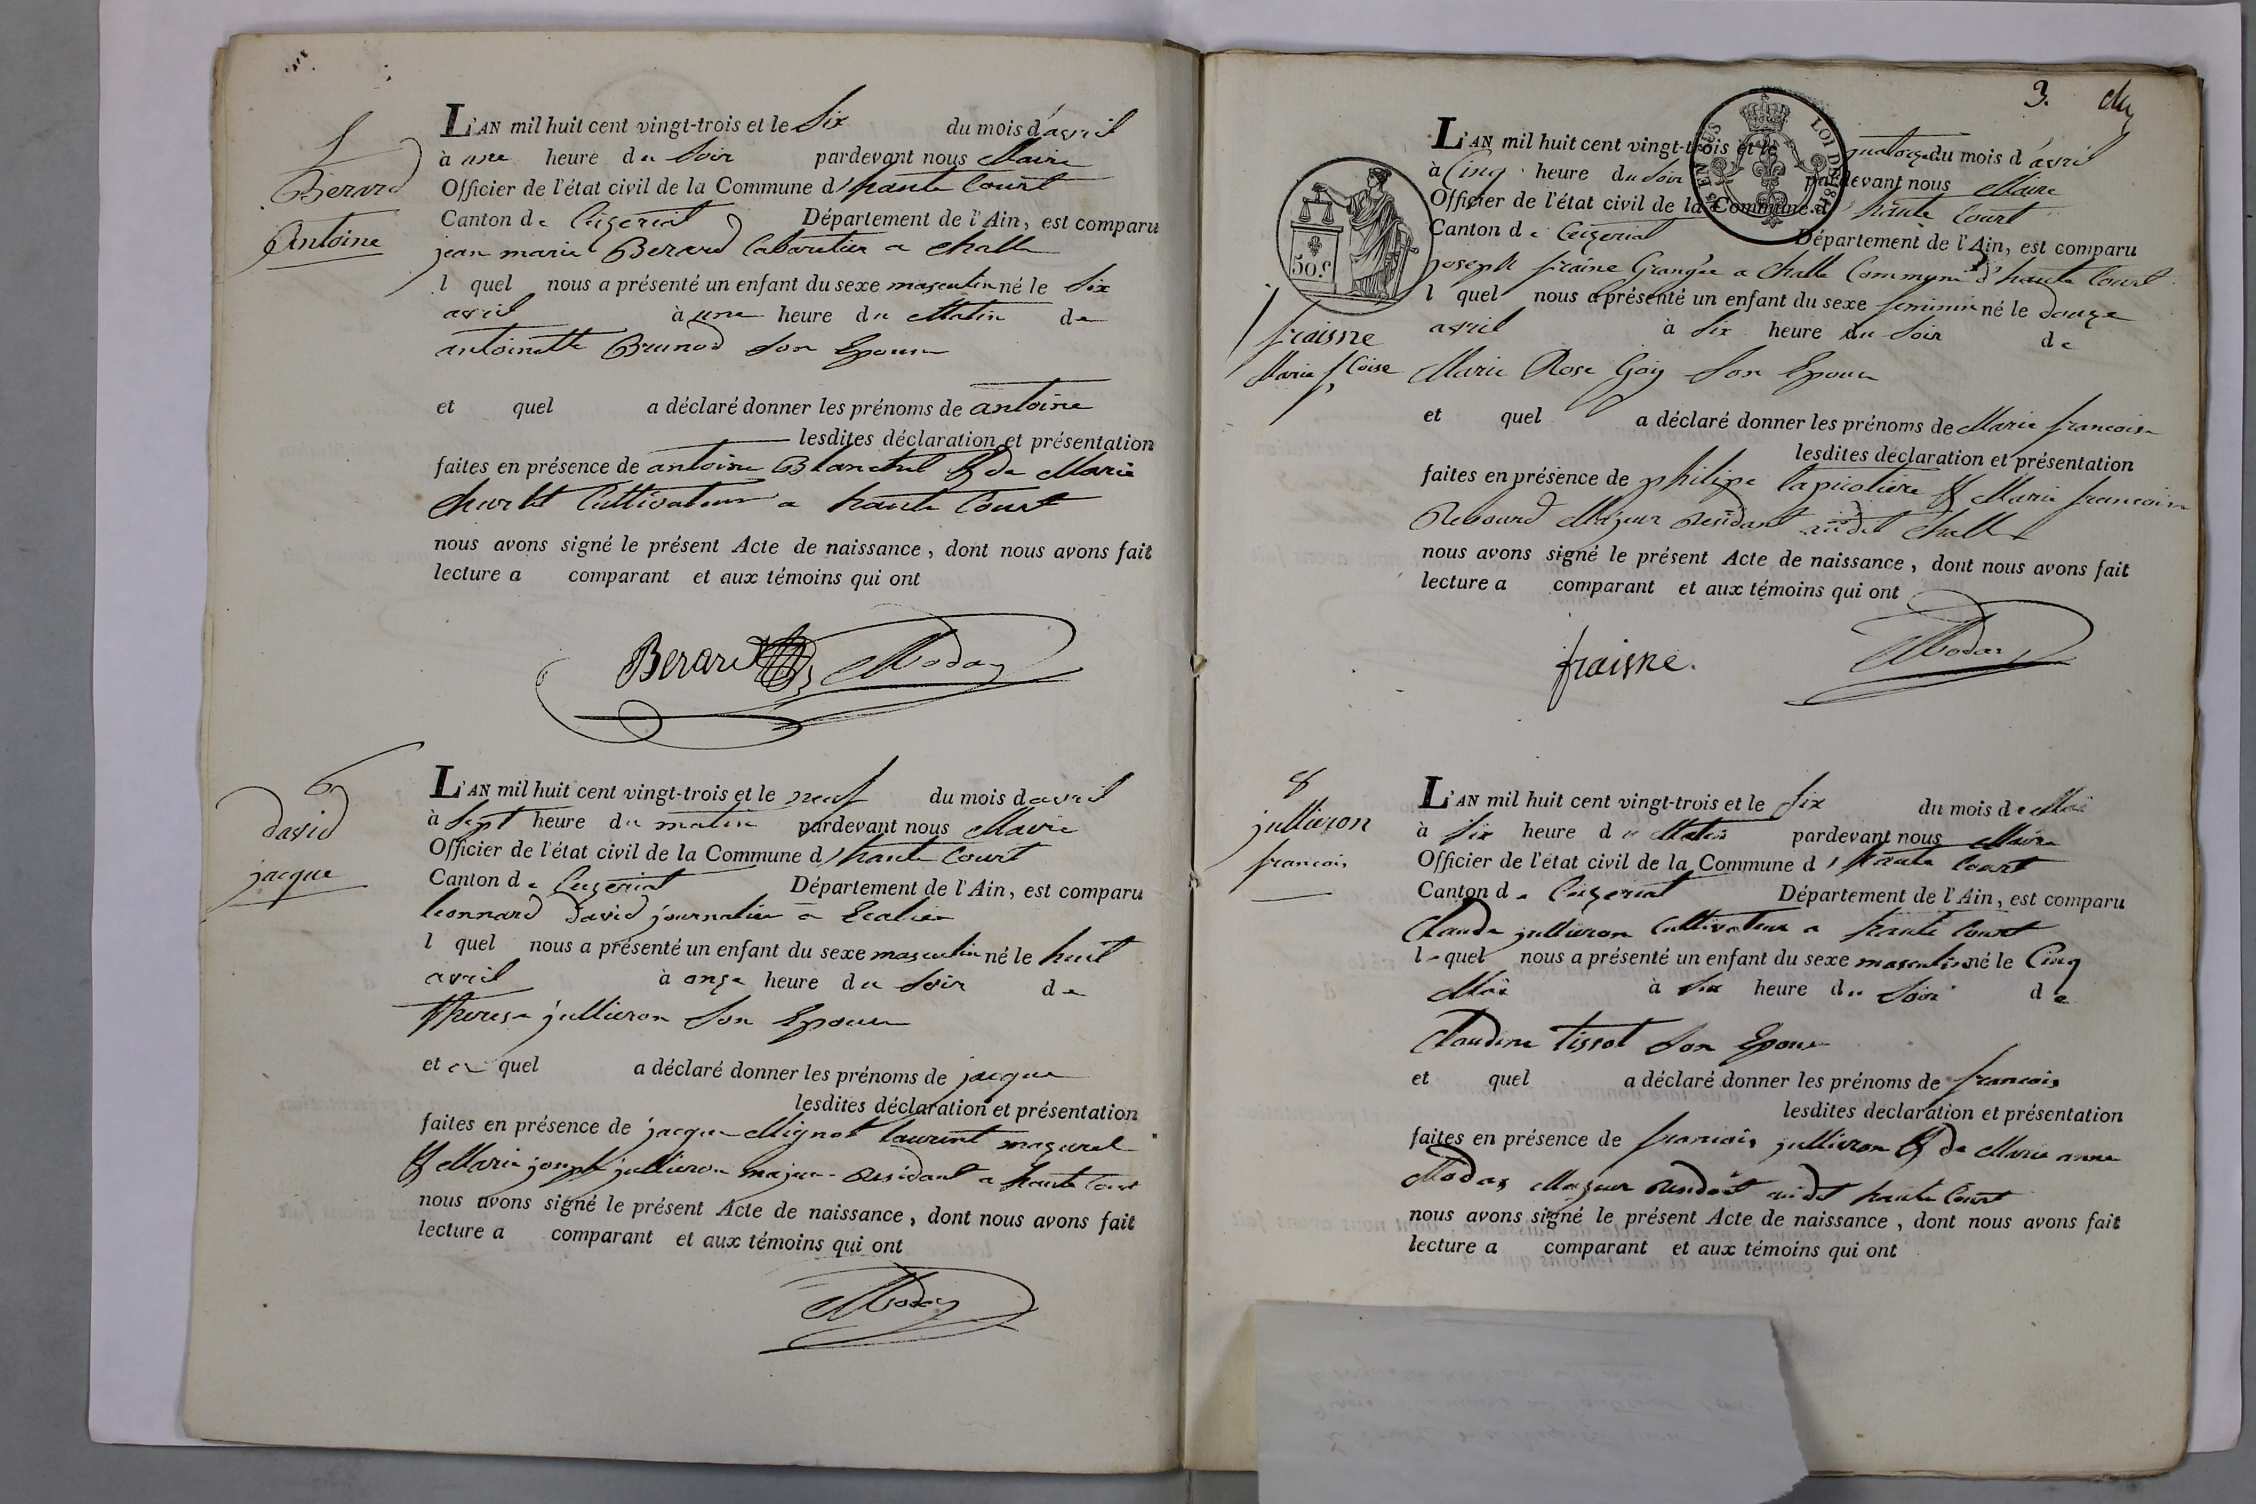 5
Berard
Antoine
L'AN mil huit cent vingt-trois et le Six du mois d'avril
à une heure du Soir pardevant nous Maire
Officier de l'état civil de la Commune d'haute Court
Canton de Ceyzeriat Département de l'Ain, est comparu
jean marie Berard Cabaretier a Challe
l quel nous a présenté un enfant du sexe masculin né le Six
avril à une heure du Matin de
antoinette Brunod Son Epouse
et quel a déclaré donner les prénoms de antoine
lesdites déclaration et présentation
faites en présence de antoine Blanchet & de Marie
Charlet Cultivateur a haute Court
nous avons signé le présent Acte de naissance, dont nous avons fait
lecture a comparant et aux témoins qui ont
Berard Moday
6
david
jacque
L'AN mil huit cent vingt-trois et le neuf du mois d avril
à Sept heure du matin pardevant nous Maire
Officier de l'état civil de la Commune d'haute Court
Canton de Ceyzeriat Département de l'Ain, est comparu
leonnard david journalier a
l quel nous a présenté un enfant du sexe masculin né le huit
avril à onze heure du Soir de
therese jullieron Son Epouse
et ce quel a déclaré donner les prénoms de jacque
lesdites déclaration et présentation
faites en présence de jacque Mignot laurent mazurel
& Marie joseph jullieron majeur Residant a haute Court
nous avons signé le présent Acte de naissance, dont nous avons fait
lecture a comparant et aux témoins qui ont
Moday
3.
LOI DE
50.c
fraisne
Marie fcoise
L'AN mil huit cent vingt-trois et le quatorze du mois d'avril
à Cinq heure du Soir pardevant nous Maire
Officier de l'état civil de la Commune d'haute Court
Canton de Ceyzeriat Département de l'Ain, est comparu
joseph fraine Granger a Challe Commune d'haute Court
l quel nous a présenté un enfant du sexe feminin né le douze
avril à Six heure du Soir de
Marie Rose Goy Son Epouse
et quel a déclaré donner les prénoms de Marie francoise
lesdites déclaration et présentation
faites en présence de philipe lapicotiere & Marie francoise
Renoud Majeur Residant audit Challe
nous avons signé le présent Acte de naissance, dont nous avons fait
lecture a comparant et aux témoins qui ont
fraisne. Moday
8
jullieron
francois
L'AN mil huit cent vingt-trois et le Six du mois de Mai
à Six heure du Matin pardevant nous Maire
Officier de l'état civil de la Commune d'haute Court
Canton de Ceyzeriat Département de l'Ain, est comparu
Claude jullieron Cultivateur a haute Court
l quel nous a présenté un enfant du sexe masculin né le Cinq
Mai à Six heure du Soir de
Claudine tissot Son Epouse
et quel a déclaré donner les prénoms de francois
lesdites declaration et présentation
faites en présence de francois jullieron & de Marie anne
Moday Majeur Residant audit haute Court
nous avons signé le présent Acte de naissance, dont nous avons fait
lecture a comparant et aux témoins qui ont